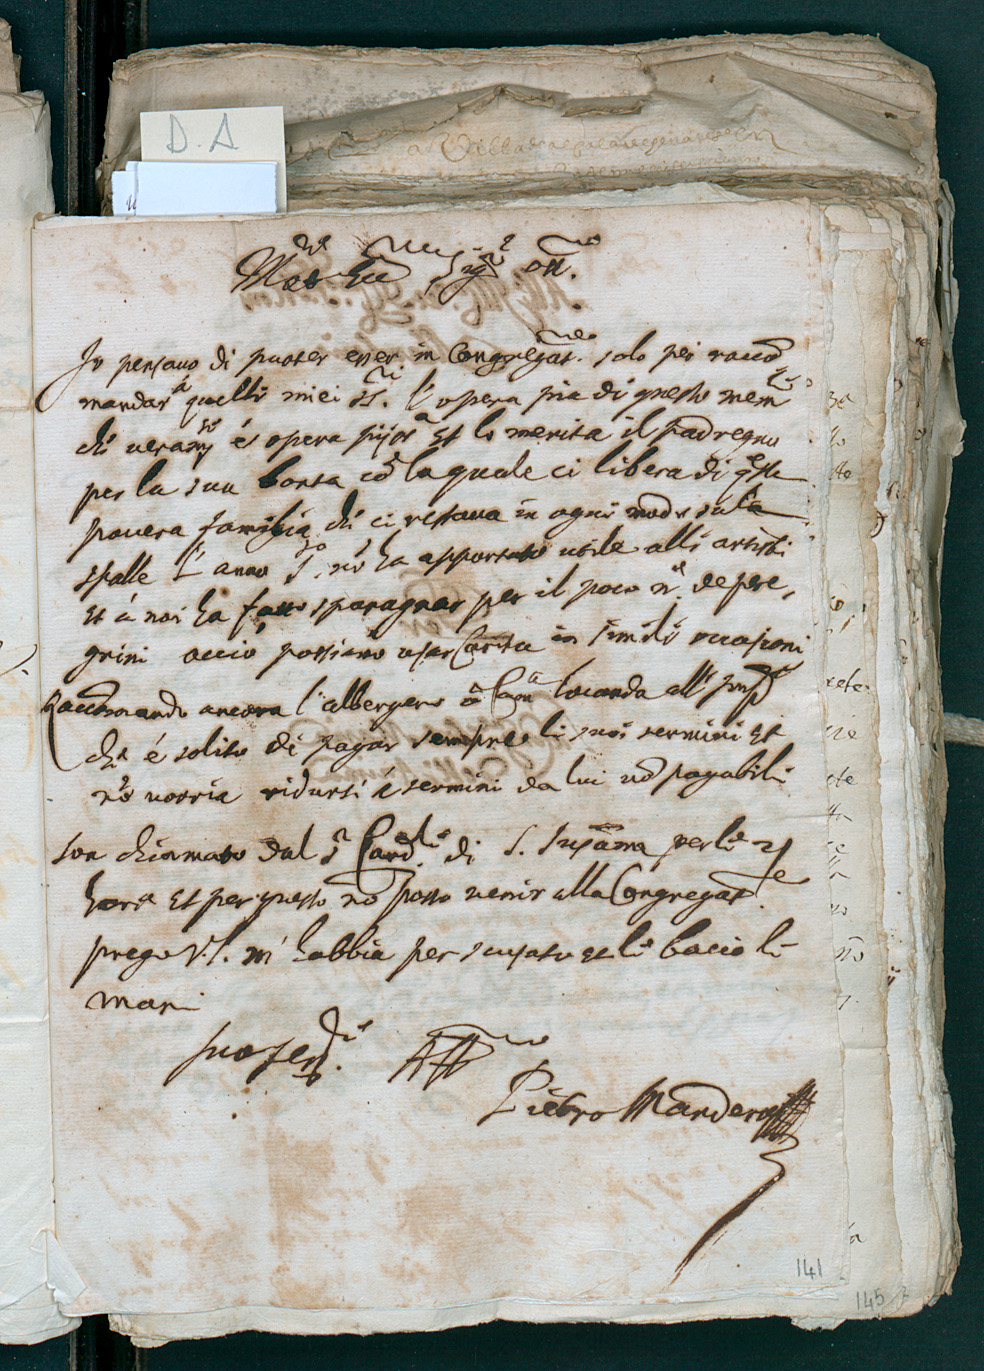 D. A
Io pensavo di puoter esser in Congregat.ne solo per raccõ
mandar a quelli miei SS.ri l'opera pia di questo mem
chi veram.te é opera pija Et lo merita il padregno
per la sua bonta cõ la quale ci libera di q̃sta
povera famiglia chi ci restava in ogni modo sula
spalle l'anno S.to nõ ha apportato utile alli artisti
Et á noi ha fatto sparagnar per il poco n.o de pere,
grini accio possiamo usar Carita in simili occasioni
Raccomando ancora l'albergero
ch é solito di pagar sempre li suoi termini Et
nõ vorria ridursi á termini da lui nõ pagabili
son chiamato dal S.r Card.le di S. Susanna per le 21
hore Et per questo nõ posso venir alla Congregat.ne
prego V.S. m'habbia per scusato et li bacio li
mani
suo ser.re Aff.mo
Pietro
141
145